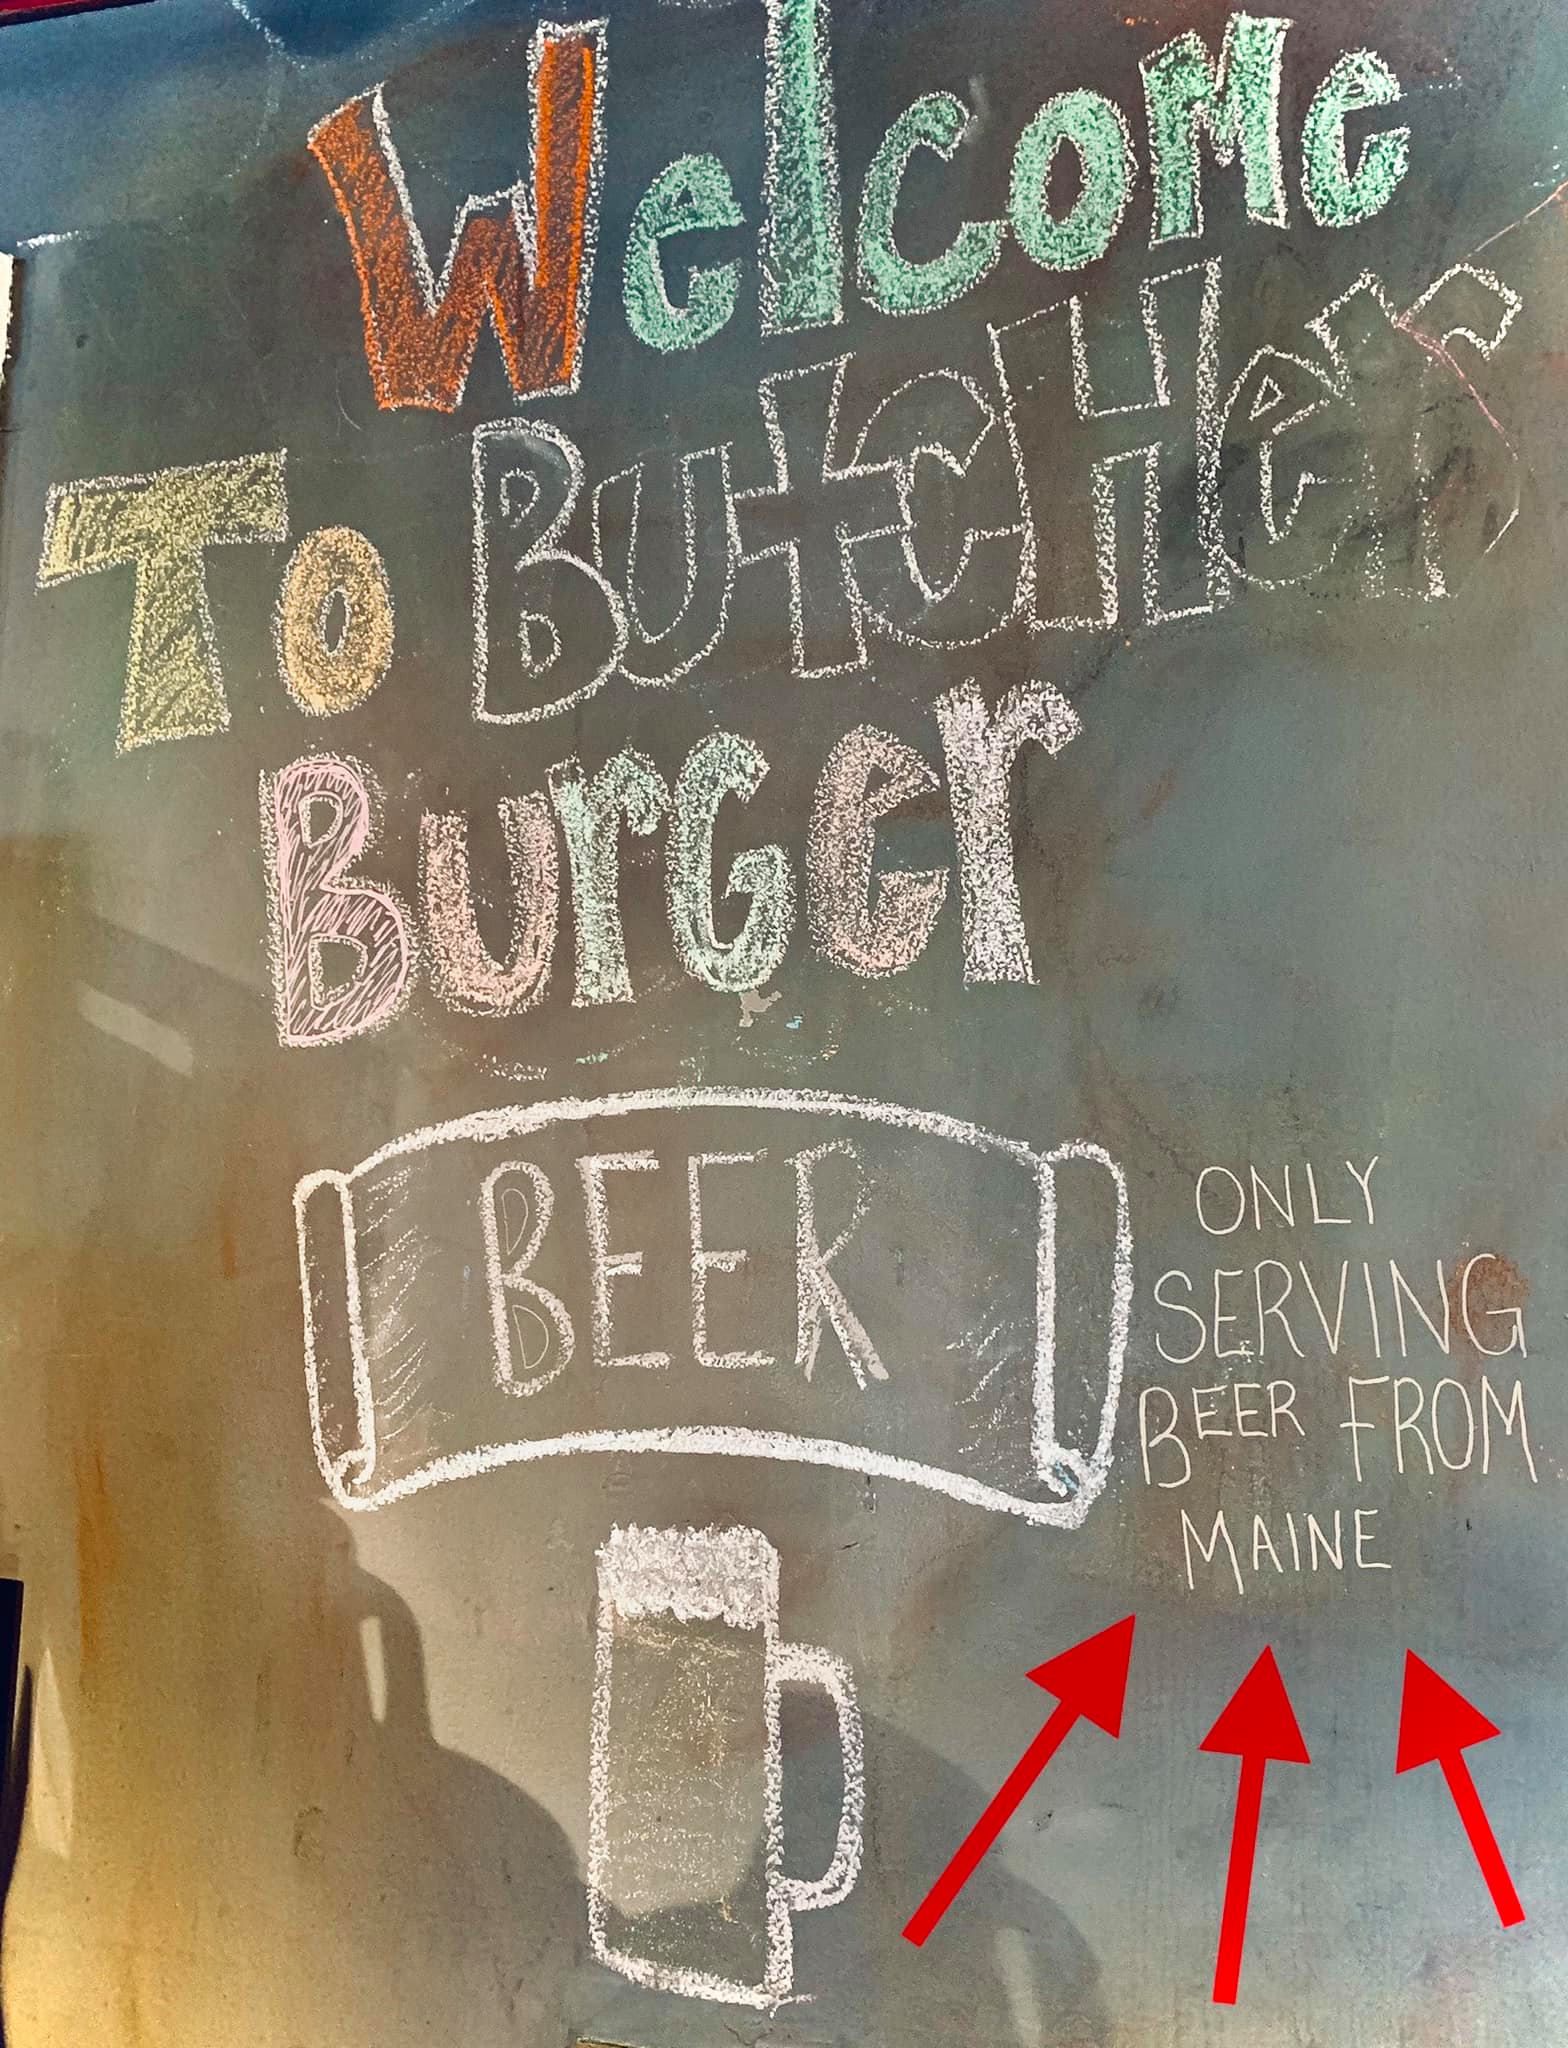 Welcome
To ButcHer
Burger
BEER
ONLY
SERVING
BEER FROM
MAINE